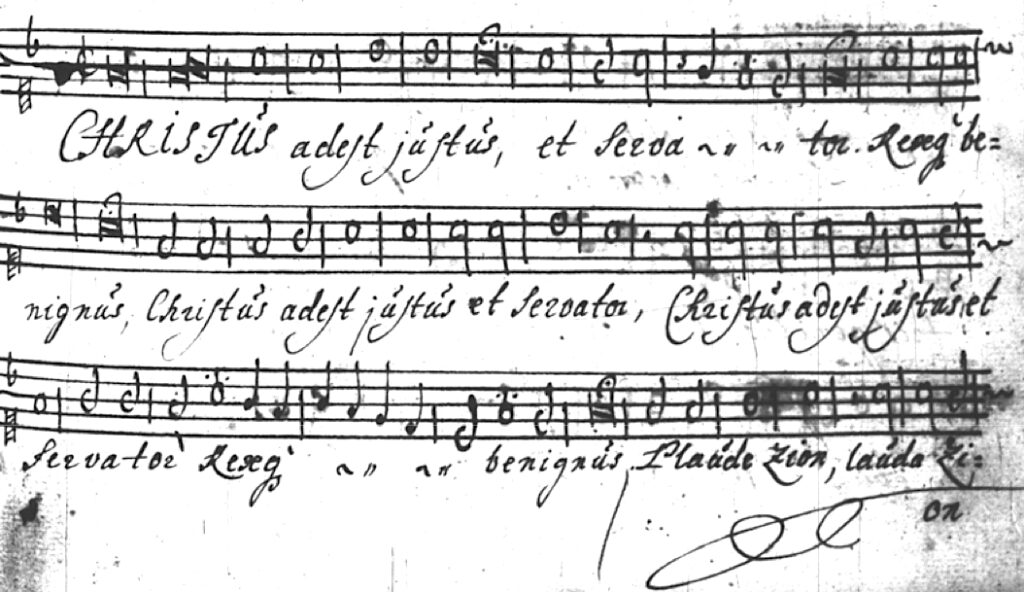 CHRISTUS adest justus, et serva ~ " ~ " tor. Rexq' be=
nignus, Christus adest justus et servator, Christus adest justus, et
servator Rexq' ~ " ~ " benignus, Plaude Zion, lauda Zi=
on